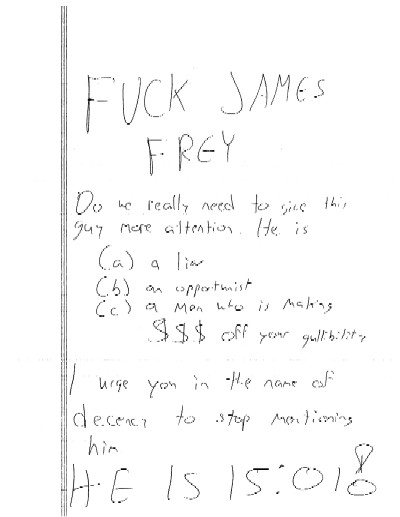 FUCK JAMES
FREY
Do we really need to give this
guy more attention. He is
(a) a liar
(b) an opportunist
(c) a man who is making
$$$ off your gullibility
I urge you in the name of
decency to stop mentioning
him
HE IS 15:018